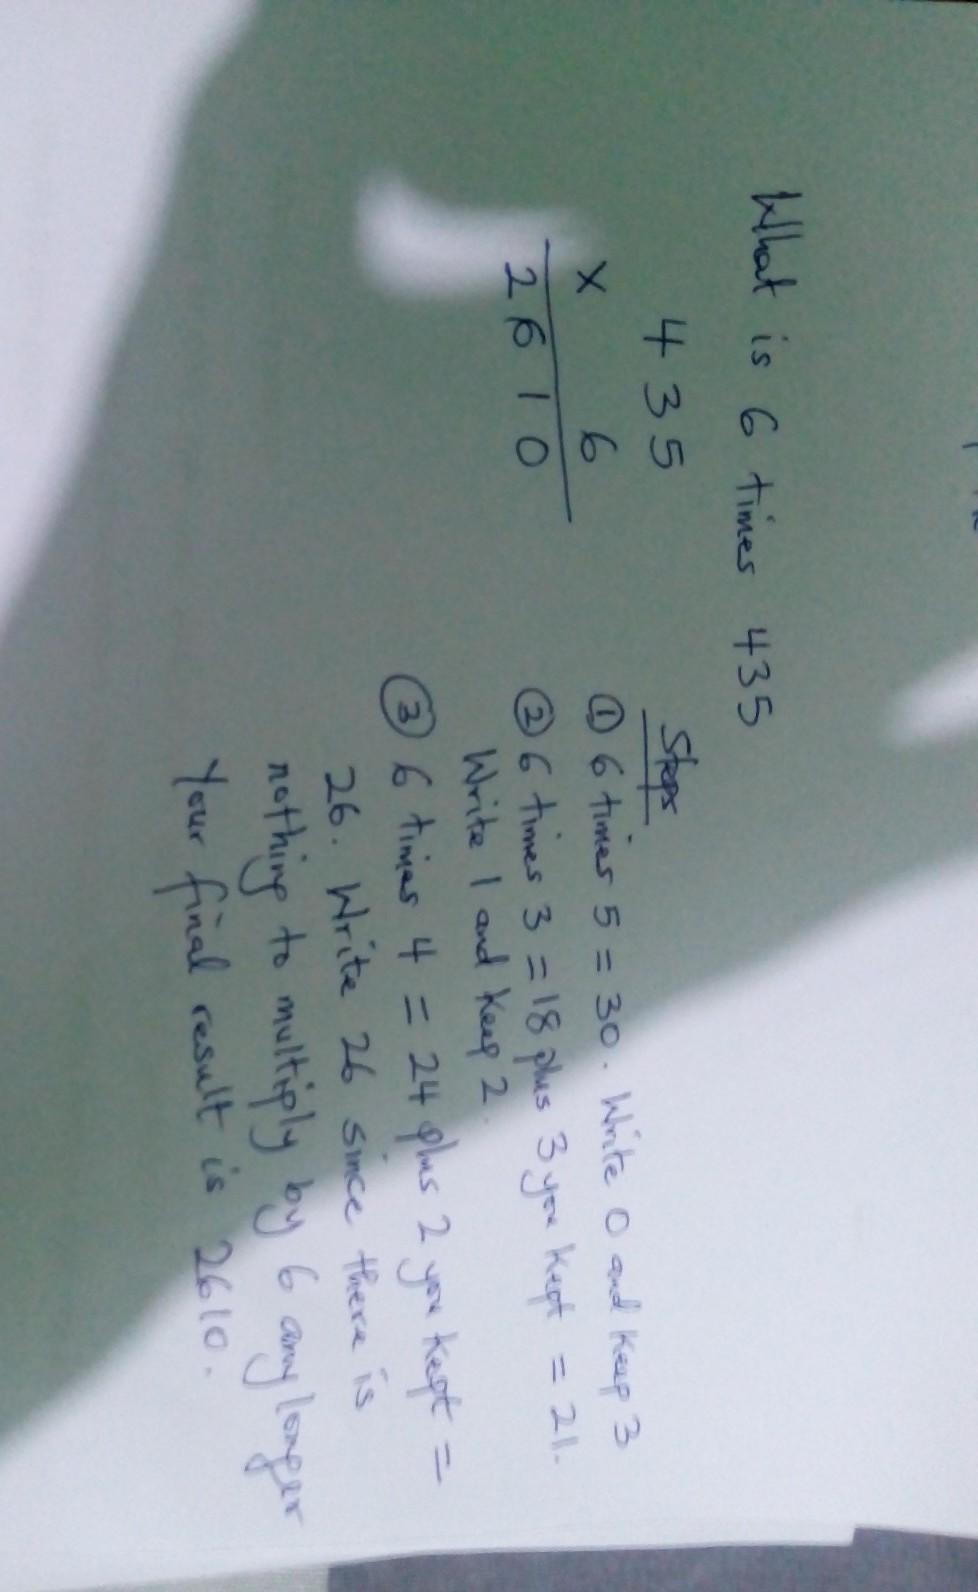 What is 6 times 435
4 3 5
x 6
2 6 1 0
Steps
① 6 times 5 = 30. Write 0 and keep 3
② 6 times 3 = 18 plus 3 you kept = 21.
Write 1 and keep 2.
③ 6 times 4 = 24 plus 2 you kept =
26. Write 26 since there is
nothing to multiply by 6 any longer
Your final result is 2610.